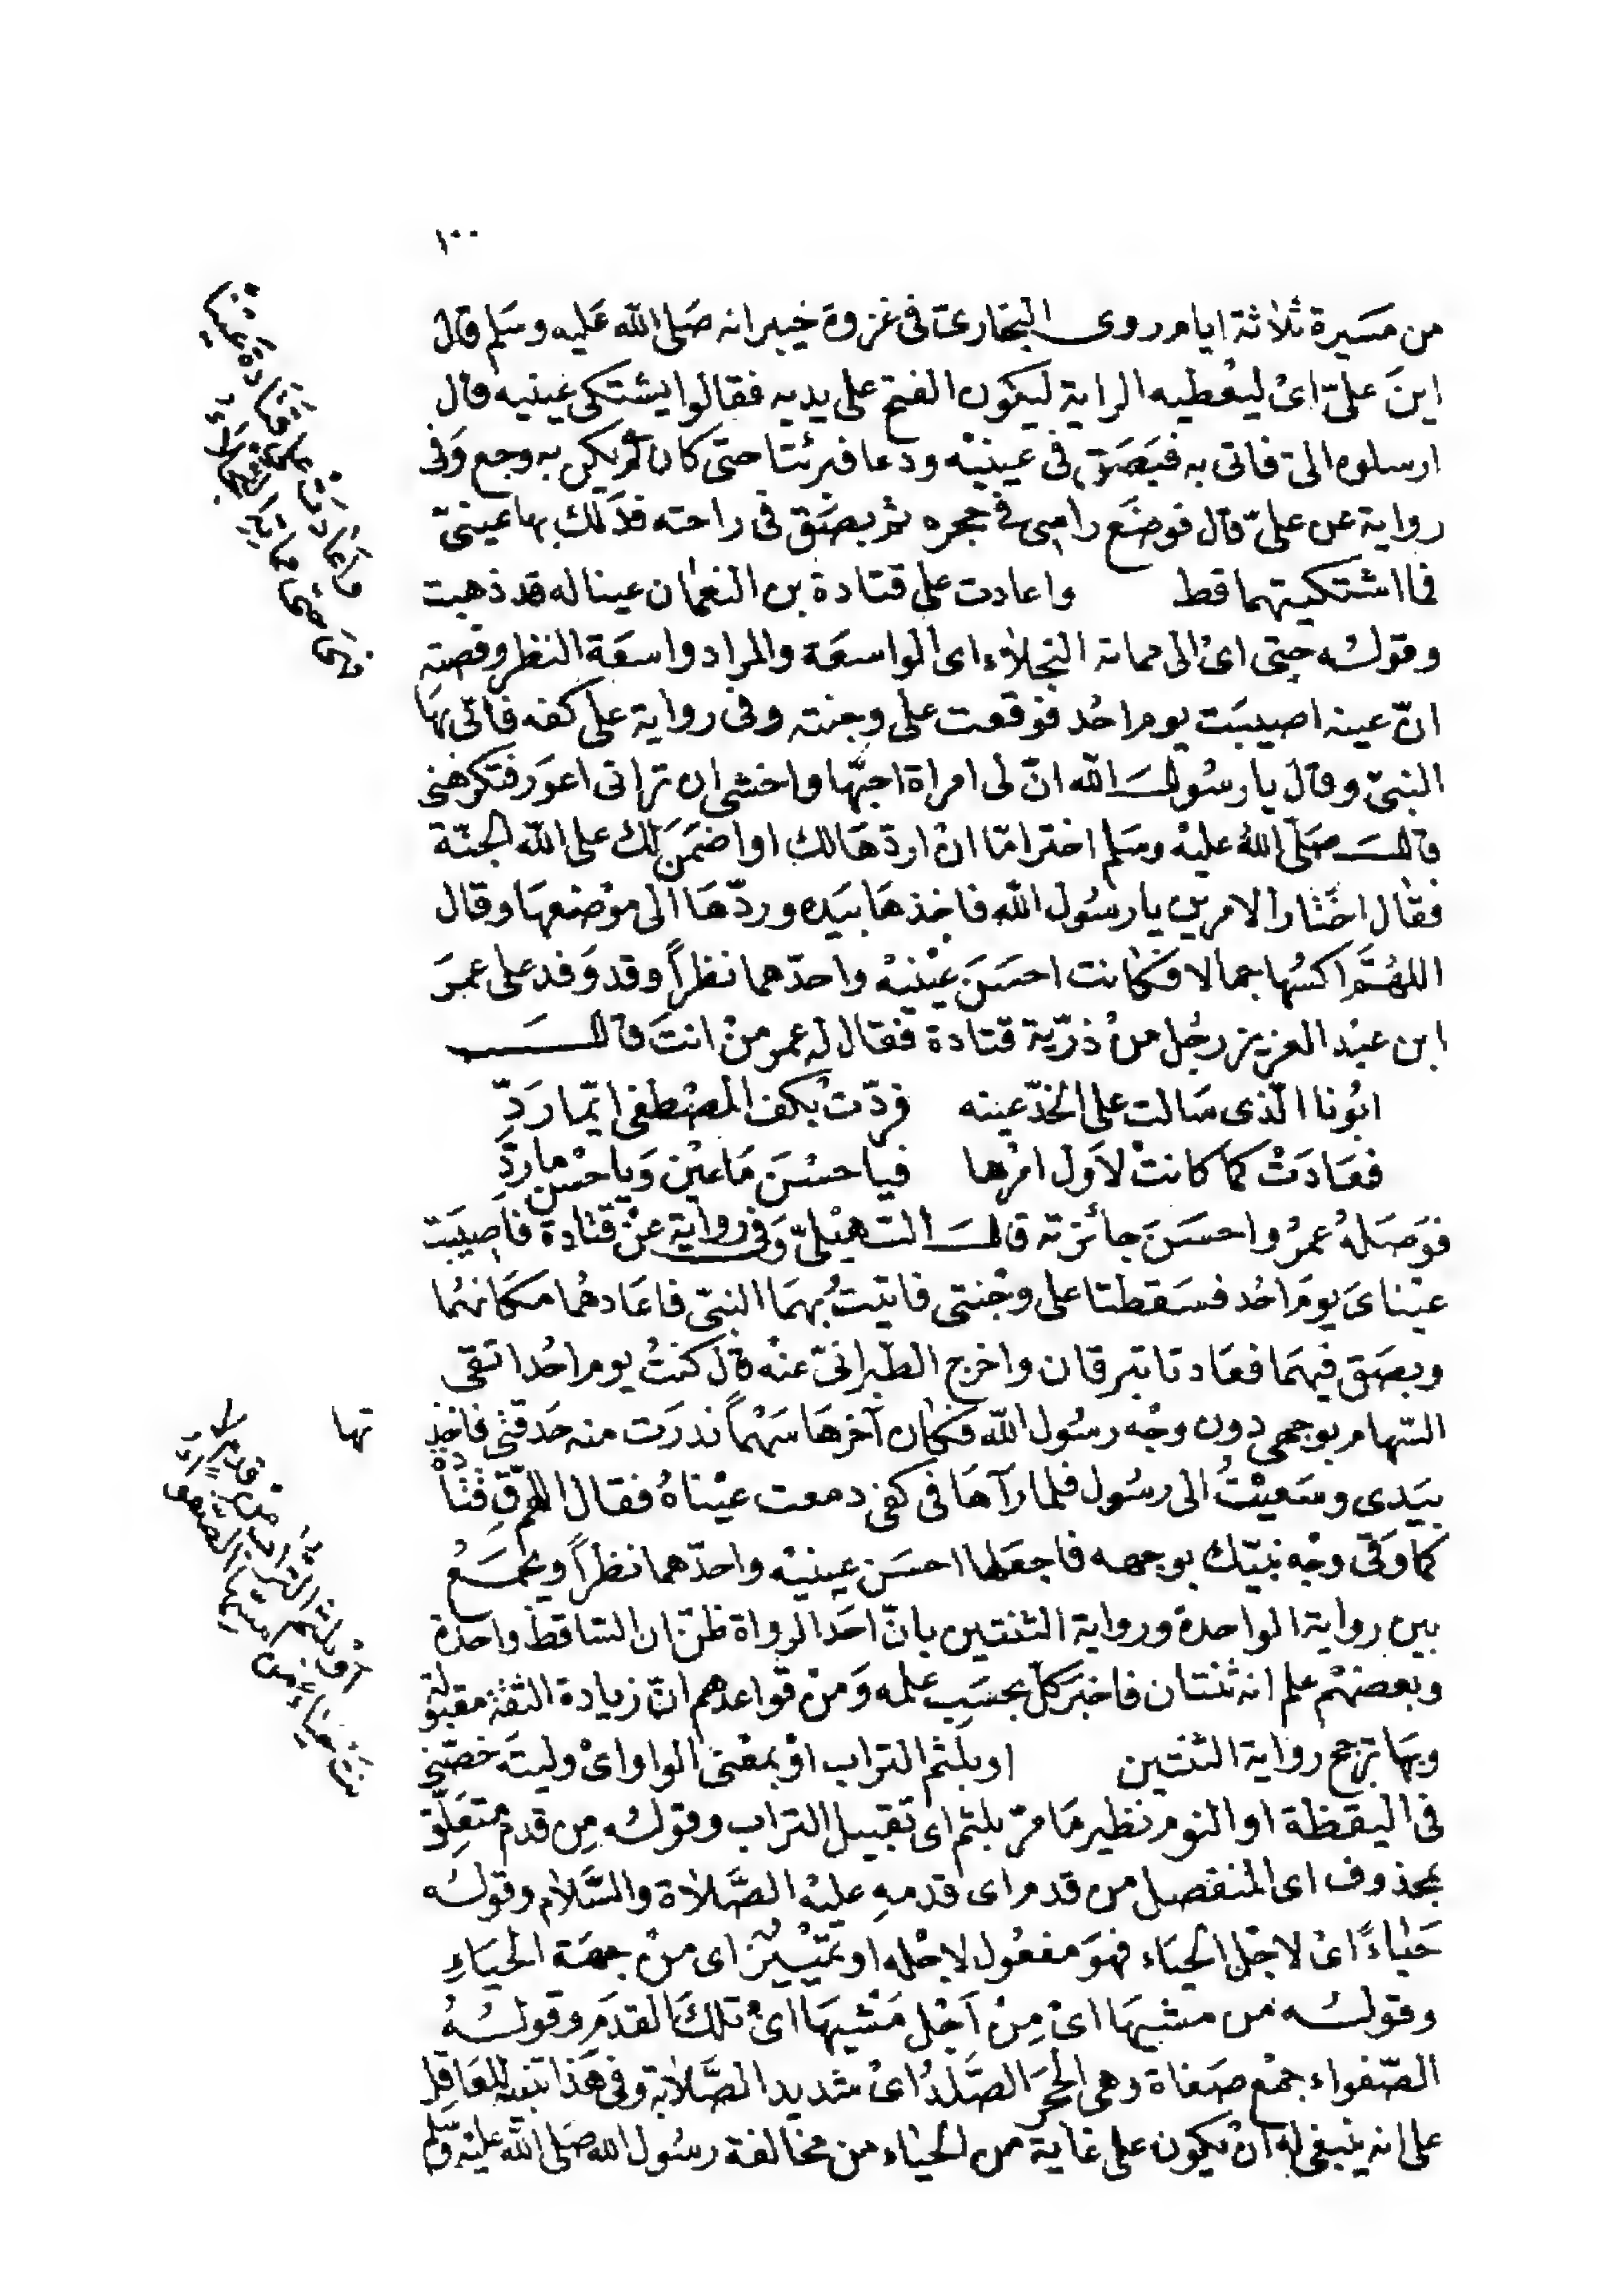 ١٠٠
من مسيرة ثلاثة ايام روى البخارى فى غزوة خيبر انه صَلى الله عَليه وسَلم قال
اينَ علىّ اىْ ليعْطيه الراية ليكون الفتح على يديه فقالوا يشتكى عينيه قال
ارسلوه الىّ فاتى به فبَصَق فى عينيْه ودعا فبرئتا حتى كان لم يكن به وجع وَفى
رواية عن علىّ قال فوضَع راسى فى حجره ثم بصَق فى راحته فدَلك بها عينىّ
فما اشتكيتهما قط واعادت على قتادة بن النعمان عينا له قد ذهبت
وقوله حتى اىْ الى مماته النجلاء اى الواسعَة والمراد واسعَة النظر وقصته
انّ عينه اصيبَت يوم احُد فوقعت على وجنته وفى رواية على كفه فاتى بهَا
النبىّ وقال يا رسُول الله انّ لى امراة احبّها واخشى ان ترانى اعوَر فتكرهنى
قال صَلى اللهُ عليْه وسَلم اختر امّا انْ اردّهَا لك او اضمَن لك على الله الجنّة
فقال اخْتَار الامرين يا رسُول الله فاخذهَا بيَده وردّهَا الى موْضعهَا وقال
اللهُمَّ اكسُها جمالا فكانت احسَنَ عيْنيْهْ واحدّهما نظراً وقد وَفد على عمرَ
ابن عبْد العزيز رجُل منْ ذرّية قتادة فقال له عمر منْ انتَ قال
ابُونا الّذى سَالت على الخدّ عينه فردّتْ بكف المصْطفى ايّما رَدِّ
فعَادَتْ كما كانتْ لاَول امْرها فيا حسْنَ مَا عيْن وَيا حسْن ما رَدِّ
فوَصَلهُ عمرُ واحسَنَ جائزته قالَ السّهيْلىّ وَفى رواية عنْ قتادة فاصيبَت
عيْناىَ يومَ احُد فسَقطتا على وجْنتى فاتيْتُ بهمَا النبىّ فاعَادهُما مكانهُما
وبصَق فيهمَا فعَادتا تبرقان واخرج الطبرانىّ عنْه قال كنتُ يوم احُد اتقى
السّهام بوجهى دون وجْه رسُول الله فكان آخرهَا سَهْماً ندرَت منه حَدقتى فاخذ
تها
بيَدى وسَعيْتُ الى رسُول فلما رَآهَا فى كفى دمعت عيْناهُ فقال اللهمّ قِ قتَادة
كما وَقى وجْه نبيّك بوجهه فاجعَلها احسَن عينيْه واحدّهما نظراً ويجمَعُ
بين رواية الواحدة ورواية الثنتين بانّ احَد الرواة ظنّ ان السّاقط واحدة
وبعضهْم علم انه ثنتان فاخبرَ كلّ بحسَب علمه وَمنْ قواعدهم انّ زيادة الثقة مقبولة
وبهَا ترجح رواية الثنتين او بلثم التراب اوْ بمعْنى الواو اىْ وليتَه خصّنى
فى اليقظة او النوم نظير مَا مرّ بلثم اى تقبيل التراب وقوله مِن قدم متعَلّق
بمحذوف اى المنفصل من قدم اى قدمهِ عليْه الصَّلاة والسَّلام وقوله
حَيَاءً اىْ لاجْل الحيَاء فهوَ مفعُول لاجْله او تمْييْزٌ اى منْ جهَة الحيَاءِ
وقوله من مشيهَا اىْ مِنْ اَجْل مَشْيهَا اىْ تلكَ القدَمِ وقولهُ
الصّفواء جمْع صَفاة وهى الحجَر الصَّلدُ اىْ شديد الصَّلابة وفى هَذا تنبيه للعَاقِل
على انه ينبغى له انْ يكون على غاية من الحيَاء من مخالفة رسُول الله صَلى الله عليْه وسَلم
وَاَعَادَتْ عَلَى قَتَادَةَ عَيْنًا
فهْىَ حتى مماتهِ النَّجْلَاءُ
اَوْ بلَثْمِ التُّرَابِ مِنْ قَدَمٍ لَا
نَتْ حَيَاءً مِن مشْيهَا الصّفوَاءُ